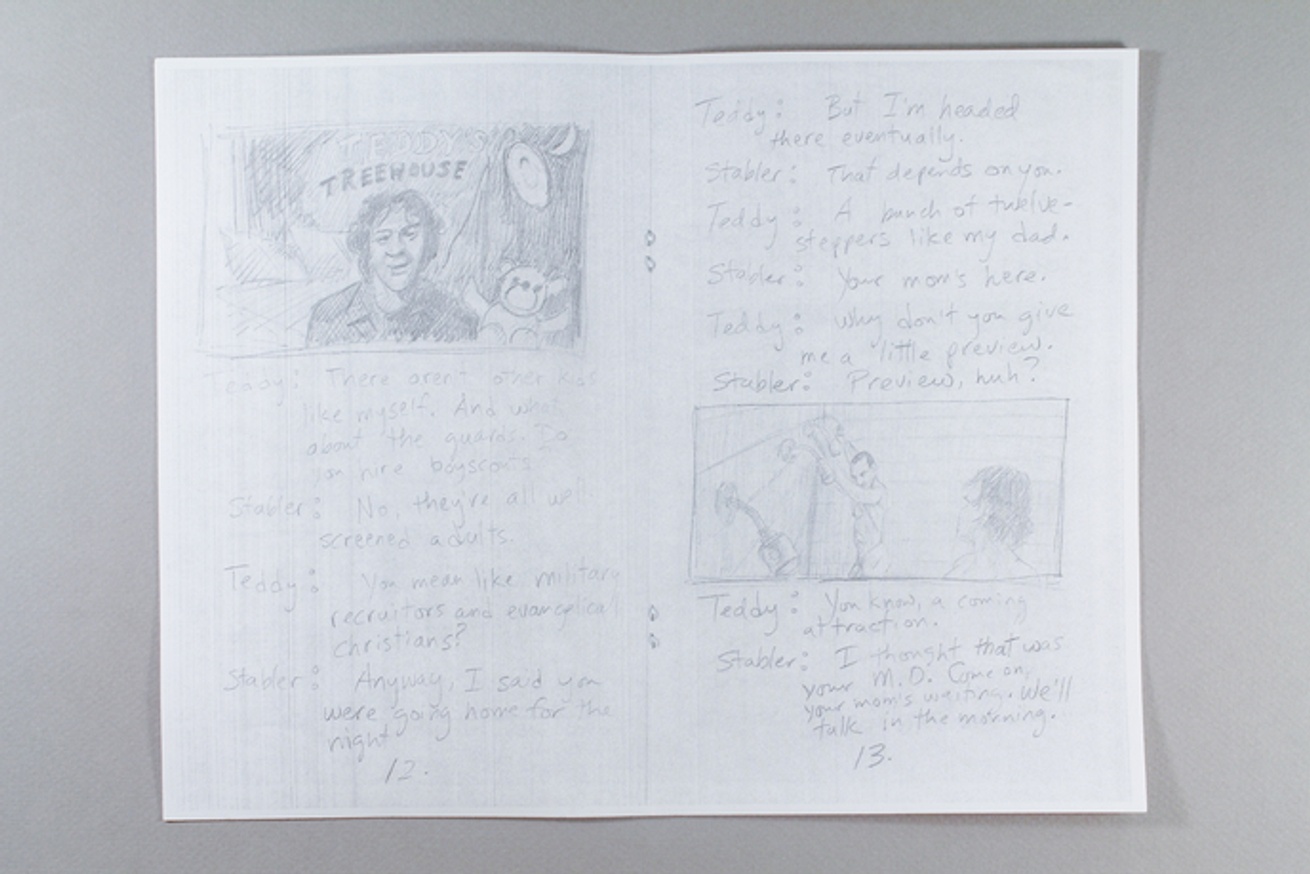 TEDDY'S
TREEHOUSE
Teddy: There aren't other kids
like myself. And what
about the guards. Do
you hire boyscouts
Stabler: No, they're all well
screened adults.
Teddy: You mean like military
recruitors and evangelical
christians?
Stabler: Anyway, I said you
were going home for the
night
12.
Teddy: But I'm headed
there eventually.
Stabler: That depends on you.
Teddy: A bunch of twelve-
steppers like my dad.
Stabler: Your mom's here.
Teddy: Why don't you give
me a little preview.
Stabler: Preview, huh?
Teddy: You know, a coming
attraction.
Stabler: I thought that was
your M.D. Come on,
your mom's waiting. We'll
talk in the morning.
13.